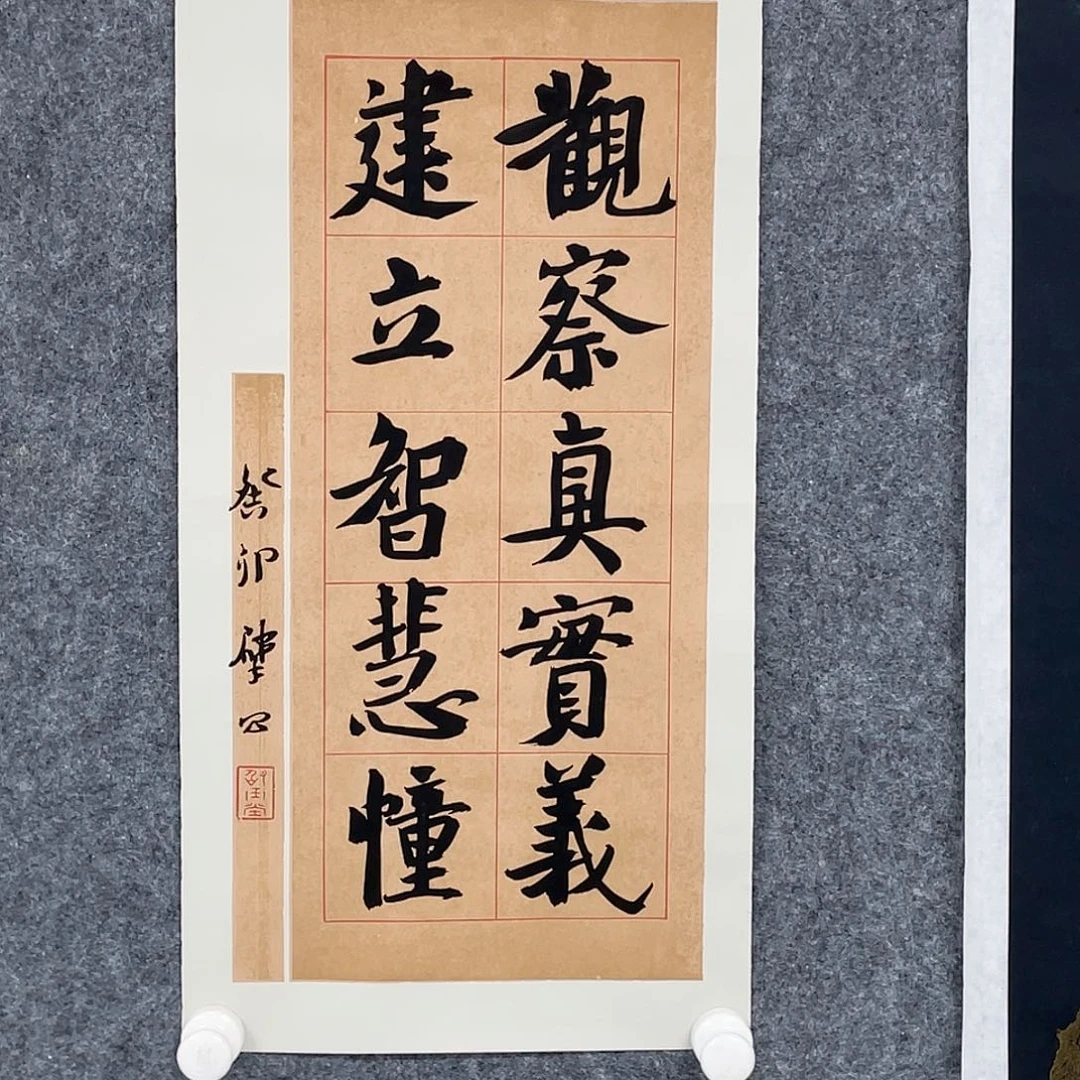 觀察真實義
建立智慧幢
癸卯肇公